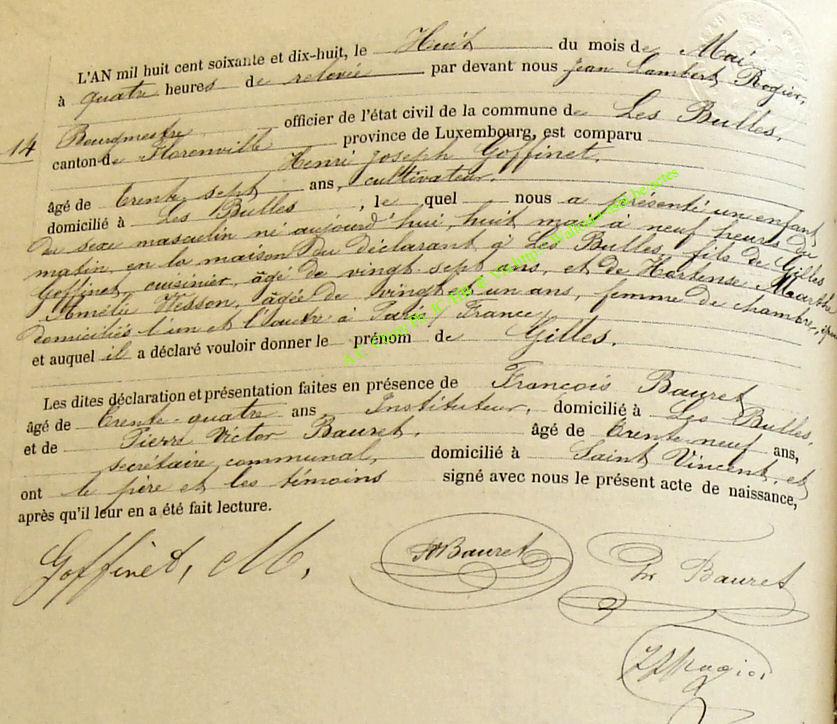 L'AN mil huit cent soixante et dix-huit, le Huit du mois de Mai,
à quatre heures de relevée par devant nous Jean Lambert Rogier,
Bourgmestre officier de l'état civil de la commune de Les Bulles,
14
canton de Florenville province de Luxembourg, est comparu
Henri Joseph Goffinet,
âgé de trente sept ans, cultivateur,
domicilié à Les Bulles, le quel nous a présenté un enfant
du sexe masculin né aujourd'hui, huit mai à neuf heures du
matin, en la maison du déclarant à Les Bulles, fils de Gilles
Goffinet, cuisinier, âgé de vingt sept ans, et de Hortense Marthe
Amélie Wesson, âgée de vingt un ans, femme de chambre,
domiciliés l'un et l'autre à Paris, France,
et auquel il a déclaré vouloir donner le prénom de Gilles.
Les dites déclaration et présentation faites en présence de François Bauret
âgé de trente-quatre ans Instituteur, domicilié à Les Bulles,
et de Pierre Victor Bauret, âgé de trente-neuf ans,
secrétaire communal, domicilié à Saint Vincent, et
ont le père et les témoins signé avec nous le présent acte de naissance,
après qu'il leur en a été fait lecture.
Goffinet, M. Bauret Bauret